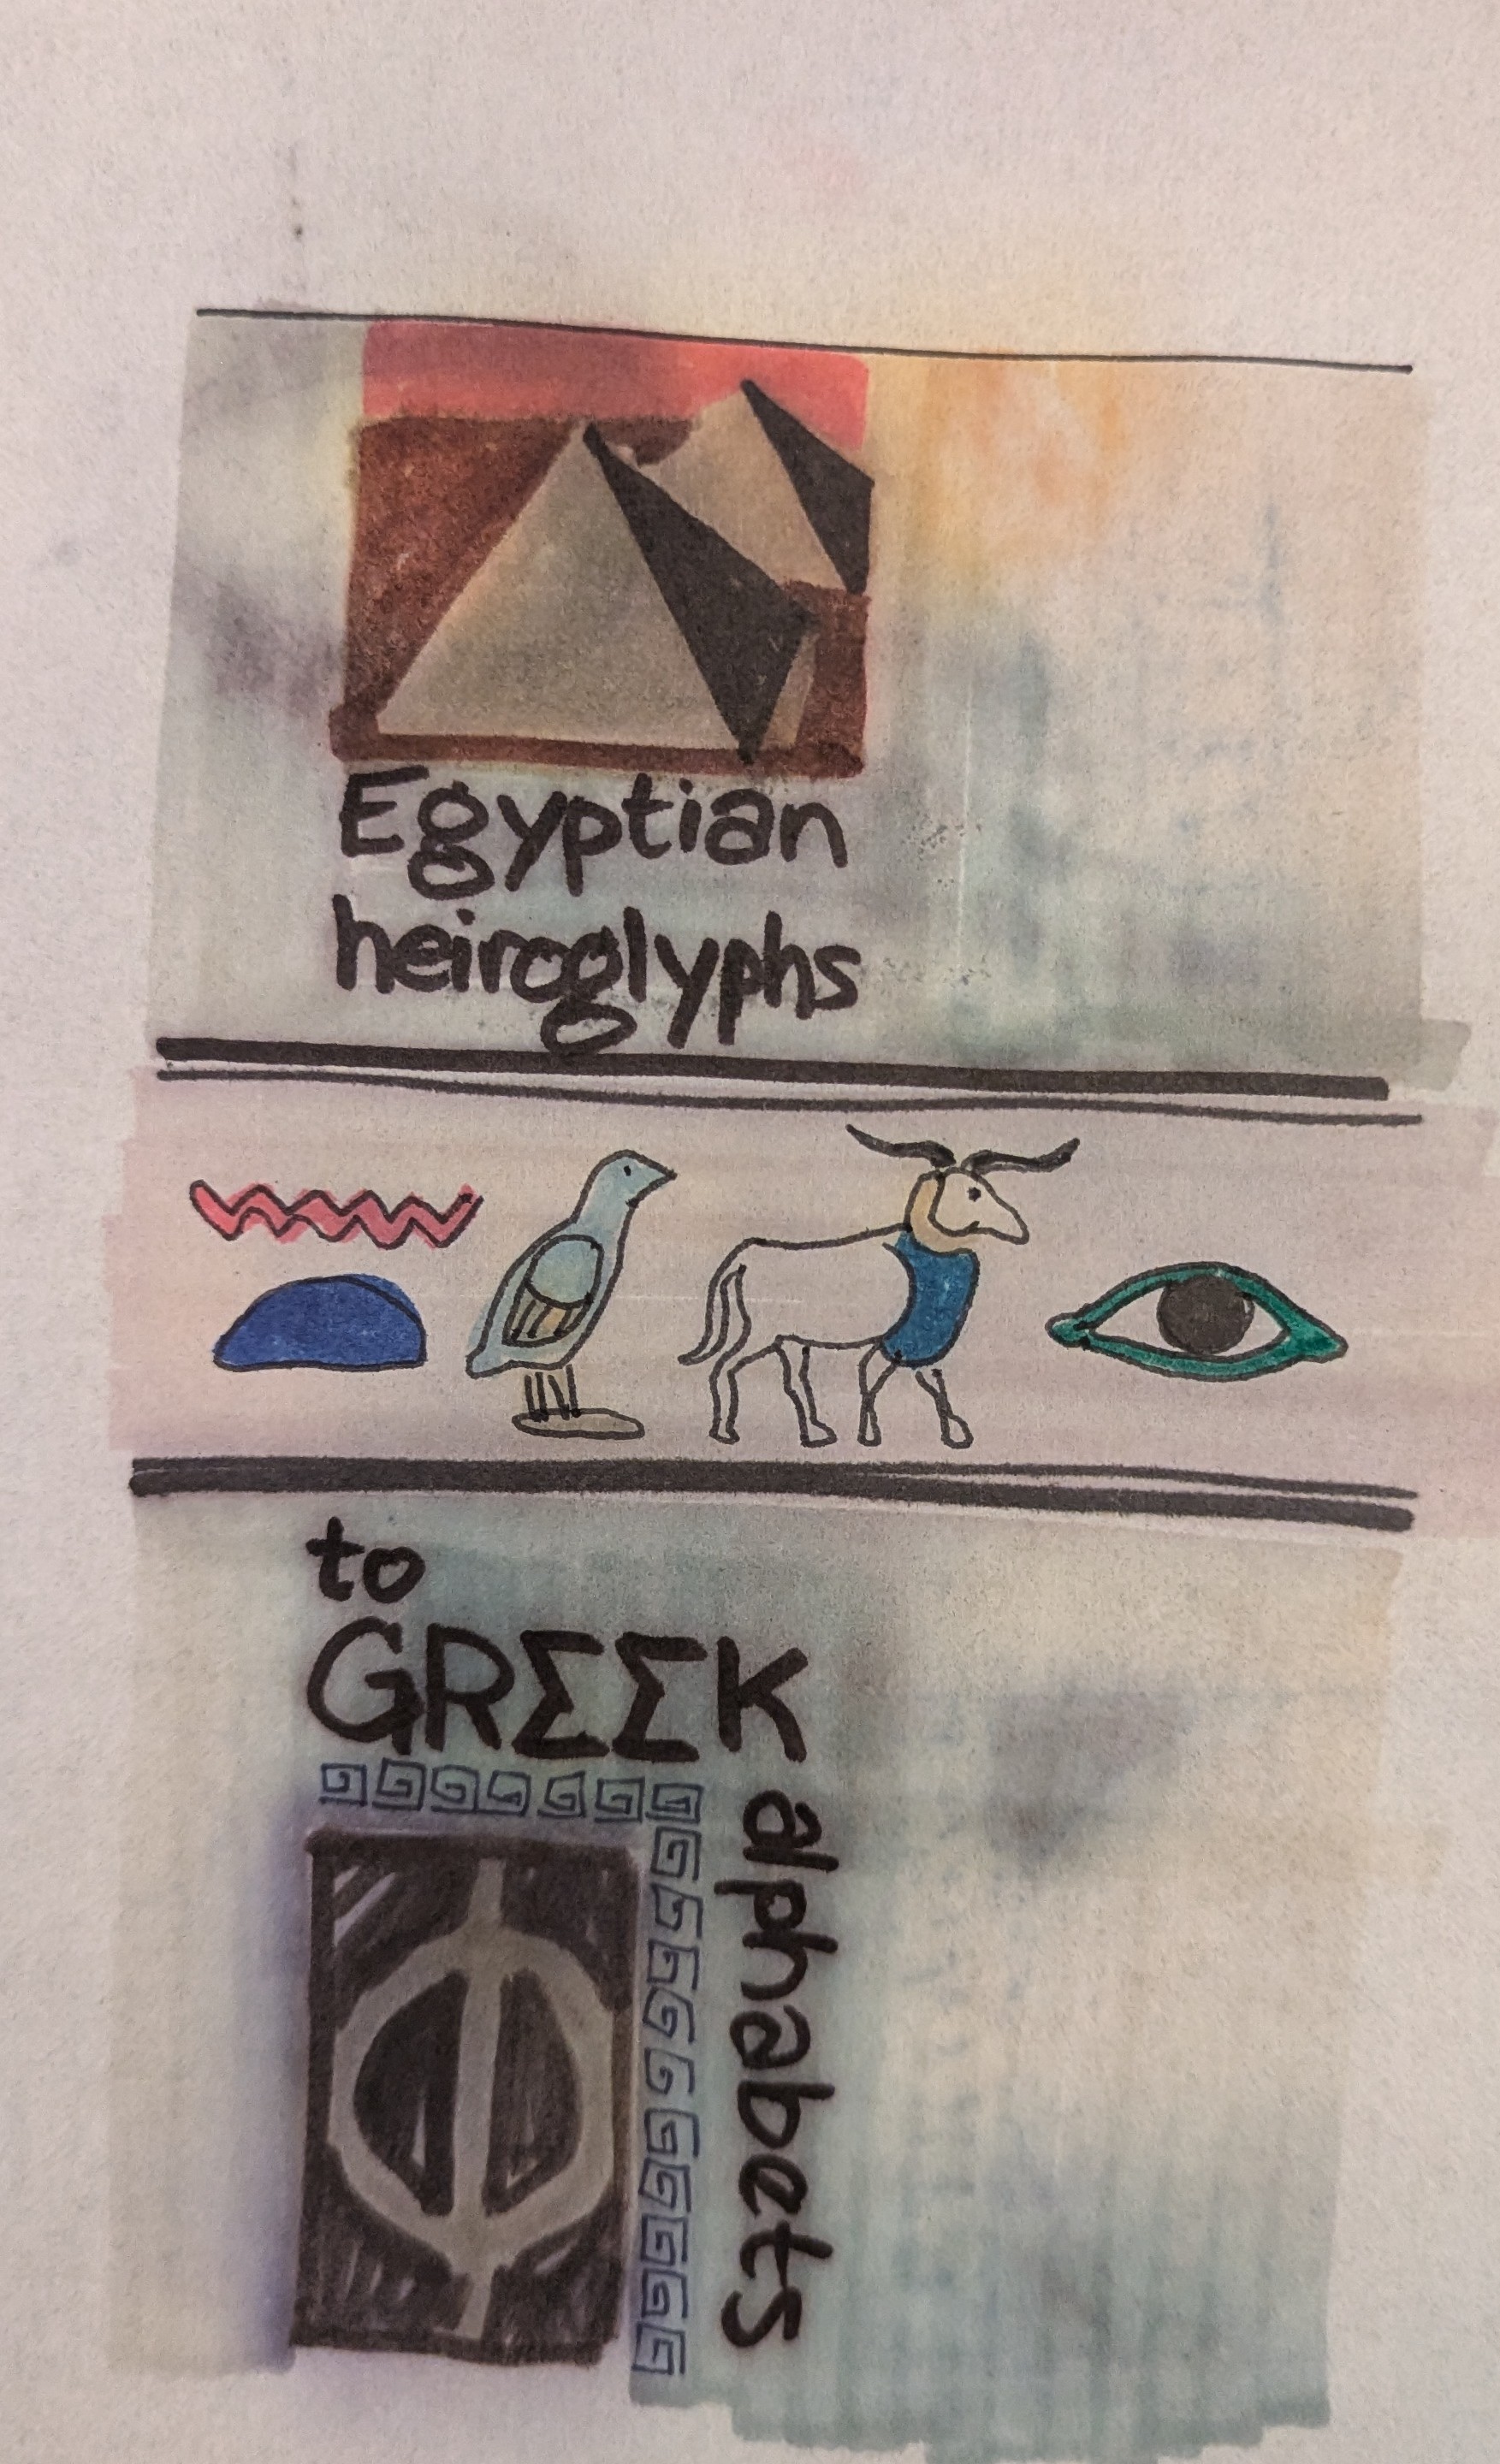 Egyptian
heiroglyphs
to
GRΣΣK
alphabets
Φ